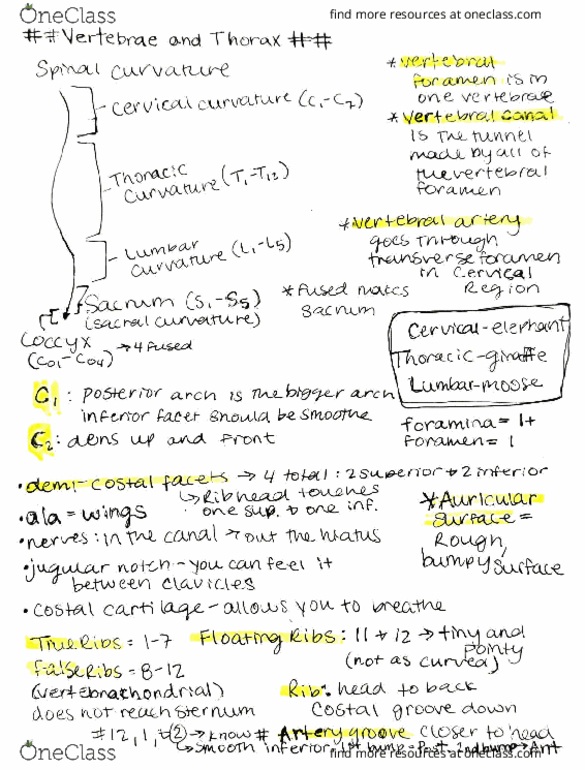 OneClass
find more resources at oneclass.com
##Vertebrae and Thorax ##
Spinal curvature
Cervical curvature (C1-C7)
Thoracic
Curvature (T1-T12)
Lumbar
curvature (L1-L5)
Sacrum (S1-S5)
(sacral curvature)
*fused makes
sacrum
Coccyx
(Co1-Co4)
→4 fused
*vertebral
foramen is in
one vertebrae
*vertebral canal
is the tunnel
made by all of
the vertebral
foramen
*vertebral artery
goes through
transverse foramen
in cervical
Region
Cervical-elephant
Thoracic-giraffe
Lumbar-moose
foramina = 1+
foramen = 1
C1: posterior arch is the bigger arch
inferior facet should be smoothe
C2: dens up and front
•demi-costal facets → 4 total: 2 superior + 2 inferior
↳Rib head touches
one sup. + one inf.
•ala = wings
•nerves: in the canal → out the hiatus
•jugular notch - you can feel it
between clavicles
•costal cartilage - allows you to breathe
*Auricular
surface =
Rough,
bumpy surface
True Ribs = 1-7
False Ribs = 8-12
(vertebrachondrial)
does not reach sternum
Floating Ribs: 11 + 12 → tiny and
pointy
(not as curved)
Rib: head to back
Costal groove down
#12, 1, +② → know # Artery groove closer to head
↳smooth inferior, 1st bump = Post, 2nd bump → Ant
OneClass
find more resources at oneclass.com